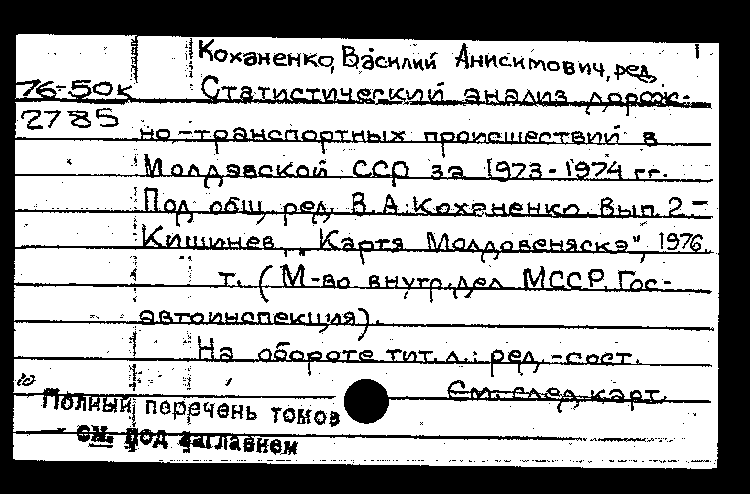 Коханенко, Василий Анисимович, ред.
76-50к Статистический анализ дорож-
2785 но-транспортных происшествий в
Молдавской ССР за 1973-1974 гг.
Под общ. ред. В.А. Коханенко. Вып. 2-
Кишинев, "Картя Молдовеняскэ", 1976.
т. (М-во внутр. дел МССР. Гос-
автоинспекция).
На обороте тит. л.: ред.-сост.
См. след. карт.
10
Полный перечень томов
см. под заглавием